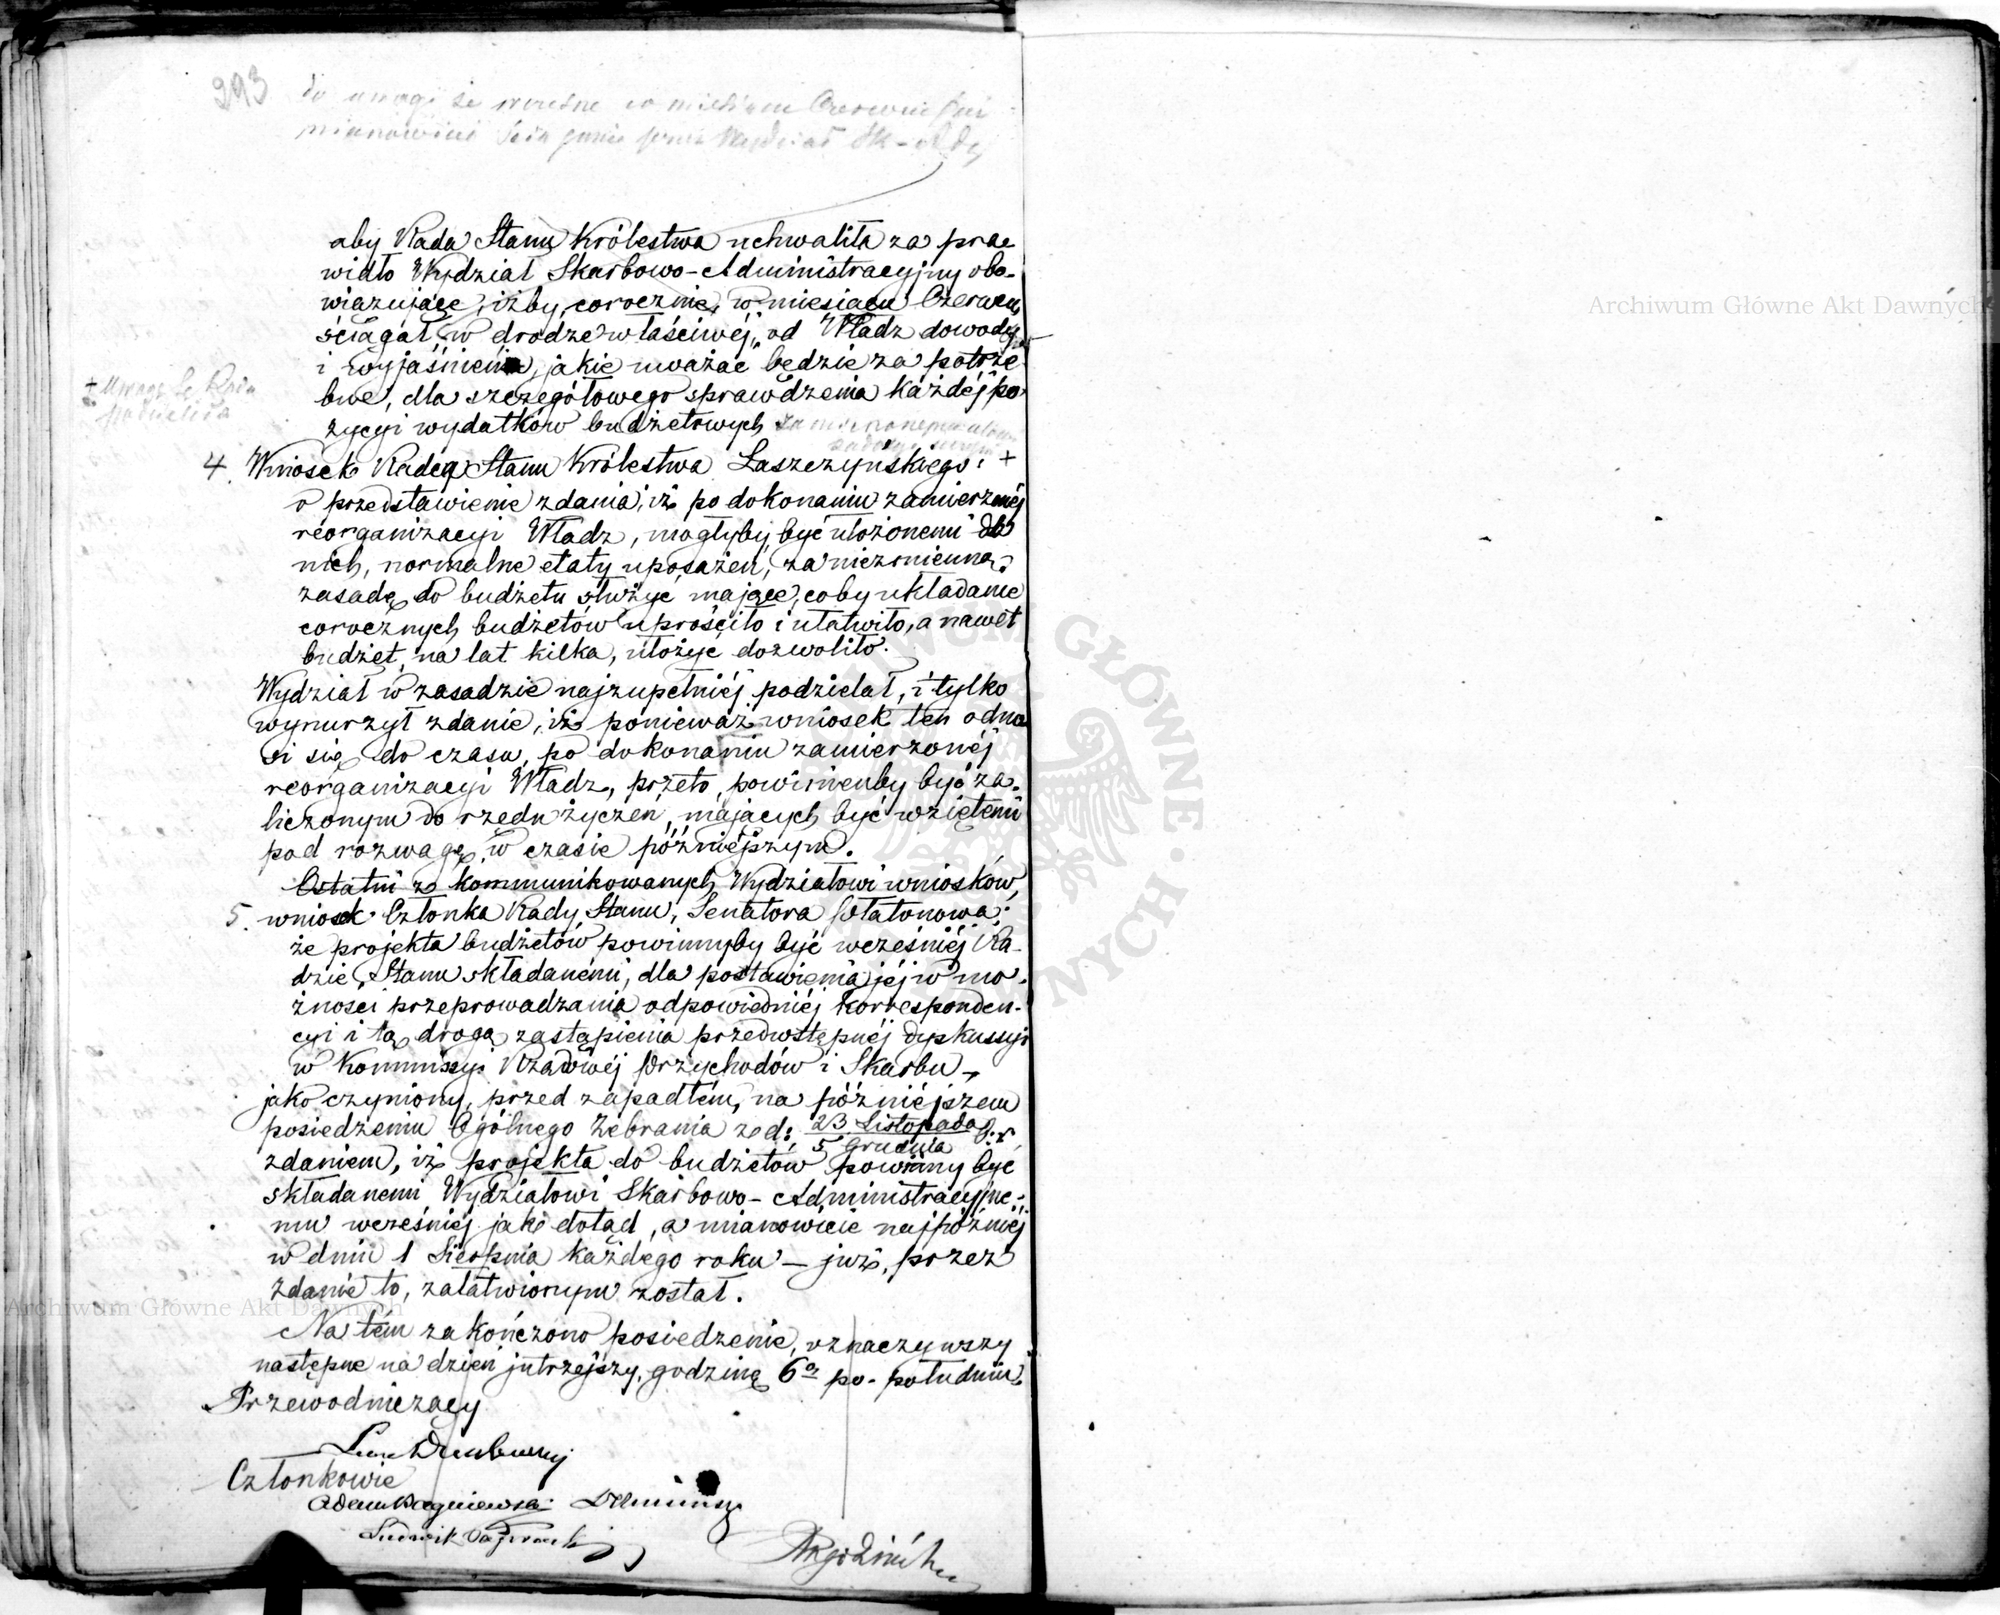 293
do uwagi że
mianowicie przez Wydział Sk-Ady
aby Rada Stanu Królestwa uchwaliła za pra-
widło Wydział Skarbowo-Administracyjny obo-
wiązujące, iżby, corocznie, w miesiącu Czerwcu,
ściągał, w drodze właściwéj, od Władz dowody
i wyjaśnienia, jakie uważać będzie za potrze-
bne, dla szczegółowego sprawdzenia każdéj po-
zycyi wydatków budżetowych
4. Wniosek Radcy Stanu Królestwa Łaszczyńskiego: +
o przedstawienie zdania, iż po dokonaniu zamierzonéj
reorganizacyi Władz, mogłyby być ułożonemi dla
nich, normalne etaty uposażeń, za niezmienną
zasadę do budżetu służyć mające, coby układanie
corocznych budżetów uprościło i ułatwiło, a nawet
budżet, na lat kilka, ułożyć dozwoliło.
Wydział w zasadzie najzupełniéj podzielał, i tylko
wynurzył zdanie, iż ponieważ wniosek ten odno-
si się do czasu, po dokonaniu zamierzonéj
reorganizacyi Władz, przeto, powinienby być za-
liczonym do rzędu życzeń, mających być wziętemi
pod rozwagę, w czasie późniejszym.
Ostatni z kommunikowanych Wydziałowi wniosków,
5. wniosek Członka Rady Stanu, Senatora Płatonowa:
że projekta budżetów powinnyby być wcześniéj Ra-
dzie Stanu składanemi, dla postawienia jéj w mo-
żności przeprowadzania odpowiedniéj korresponden-
cyi i tą drogą zastąpienia przedwstępnéj dyskussyi
w Kommissyi Rządowéj Przychodów i Skarbu –
jako czyniony, przed zapadłém, na późniejszem
posiedzeniu Ogólnego Zebrania z d: 23 Listopada b.r.
5 Grudnia
zdaniem, iż projekta do budżetów powinny być
składanemi Wydziałowi Skarbowo-Administracyjne-
mu wcześniéj jak dotąd, a mianowicie najpóźniéj
w dniu 1 Sierpnia każdego roku – już, przez
zdanie to, załatwionym został.
Na tém zakończono posiedzenie, oznaczywszy
następne na dzień jutrzejszy, godzinę 6ą po-południu.
Przewodniczący
Członkowie
Archiwum Główne Akt Dawnych
Archiwum Główne Akt Dawnych